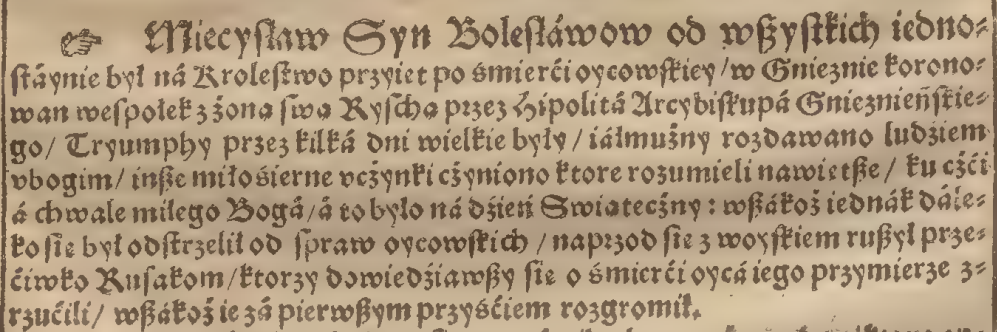 ☞ Miecysław Syn Bolesłáwow od wßyſtkich iedno⸗
ſtáynie był ná Kroleſtwo przyiet po śmierći oycowſkiey / w Gnieznie korono⸗
wan weſpołek z żona ſwa Ryſcha przez Hipolitá Arcybiſkupá Gnieznieńſkie⸗
go / Tryumphy przez kilká dni wielkie były / iáłmużny rozdawano ludziem
vbogim / inße miłośierne vcżynki cżyniono ktore rozumieli nawietße / ku cżći
á chwale miłego Bogá / á to było ná dźień Swiatecżny : wßákoż iednák dále⸗
ko ſie był odſtrzelił od ſpraw oycowſkich / naprzod ſie z woyſkiem rußył prze⸗
ćiwko Ruſakom / ktorzy dowiedźiawßy ſie o śmierći oycá iego przymierze z⸗
rzućili / wßákoż ie zá pierwßym przyśćiem rozgromił.